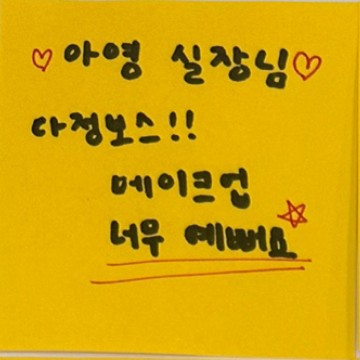 ♡아영 실장님♡
다정보스!!
메이크업
너무 예뻐요☆